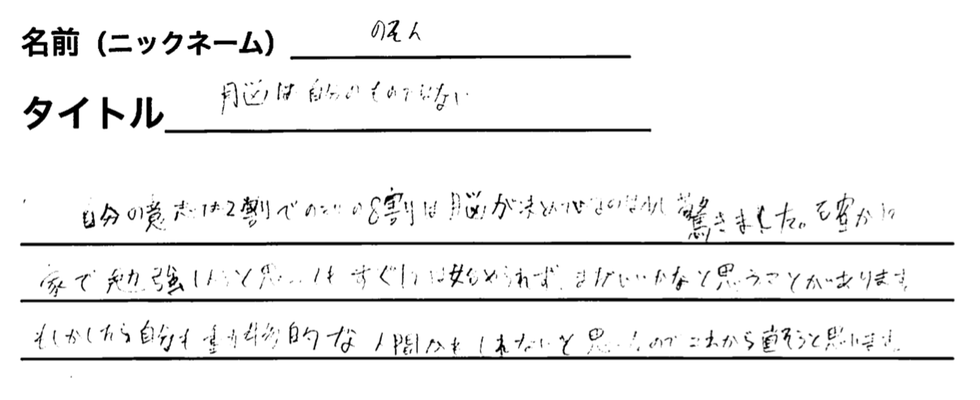 名前（ニックネーム） のぞん
タイトル 脳は自分のものではない
自分の意志は2割でのこりの8割は脳が決めたなのはれ 驚きました。確かに
家で勉強しようと思ってもすぐには始められず、まだいいかなと思うことがあります。
もしかしたら自分も 的な人間かもしれないと思ったのでこれから直そうと思います。